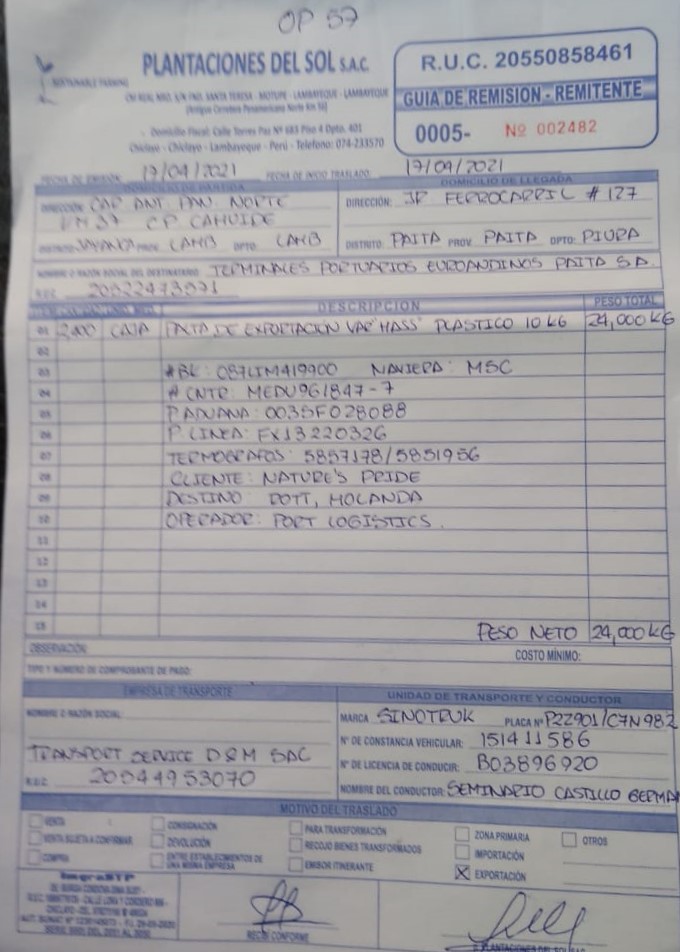 OP 57
PLANTACIONES DEL SOL S.A.C.
SUSTAINABLE FARMING
CAR. REAL NRO. S/N FND. SANTA TERESA - MOTUPE - LAMBAYEQUE - LAMBAYEQUE
(Antigua Carretera Panamericana Norte Km
Domicilio Fiscal: Calle Torres Paz Nº 683 Piso 4 Dpto. 401
Chiclayo - Chiclayo - Lambayeque - Perú - Telefono: 074-233570
R.U.C. 20550858461
GUIA DE REMISION - REMITENTE
0005- Nº 002482
FECHA DE EMISIÓN: 17/04/2021 FECHA DE INICIO TRASLADO: 17/04/2021
DOMICILIO DE PARTIDA
DIRECCIÓN: CAR ANT. PAN. NORTE
KM 37 CP CAHUIDE
DISTRITO: JAYANCA PROV. LAMB DPTO. LAMB
DOMICILIO DE LLEGADA
DIRECCIÓN: JR FERROCARRIL # 127
DISTRITO PAITA PROV. PAITA DPTO: PIURA
NOMBRE O RAZÓN SOCIAL DEL DESTINATARIO: TERMINALES PORTUARIOS EUROANDINOS PAITA S.A.
R.U.C. 20522473571
DESCRIPCION PESO TOTAL
01 2,400 CAJA PALTA DE EXPORTACION VAR "HASS" PLASTICO 10 KG 24,000 KG
02
03 # BL: 087LIM419900 NAVIERA: MSC
04 # CNTR: MEDU961847-7
05 P. ADUANA: 0035F028088
06 P. LINEA: FX13220326
07 TERMOGRAFOS: 5857178/5851956
08 CLIENTE: NATURE'S PRIDE
09 DESTINO: ROTT, HOLANDA
10 OPERADOR: PORT LOGISTICS.
11
12
13
14
15 PESO NETO 24,000 KG
OBSERVACIÓN: COSTO MÍNIMO:
TIPO Y NÚMERO DE COMPROBANTE DE PAGO:
EMPRESA DE TRANSPORTE
NOMBRE O RAZÓN SOCIAL:
TRANSPORT SERVICE D&M SAC
R.U.C. 20544953070
UNIDAD DE TRANSPORTE Y CONDUCTOR
MARCA SINOTRUK PLACA Nº P2Z901/C7N982
Nº DE CONSTANCIA VEHICULAR: 151411586
Nº DE LICENCIA DE CONDUCIR: B03896920
NOMBRE DEL CONDUCTOR: SEMINARIO CASTILLO GERMA
MOTIVO DEL TRASLADO
VENTA CONSIGNACIÓN PARA TRANSFORMACIÓN ZONA PRIMARIA OTROS
VENTA SUJETA A CONFIRMAR DEVOLUCIÓN RECOJO BIENES TRANSFORMADOS IMPORTACIÓN
COMPRA ENTRE ESTABLECIMIENTOS DE UNA MISMA EMPRESA EMISOR ITINERANTE X EXPORTACIÓN
RECIBI CONFORME
P. PLANTACIONES DEL SOL SAC